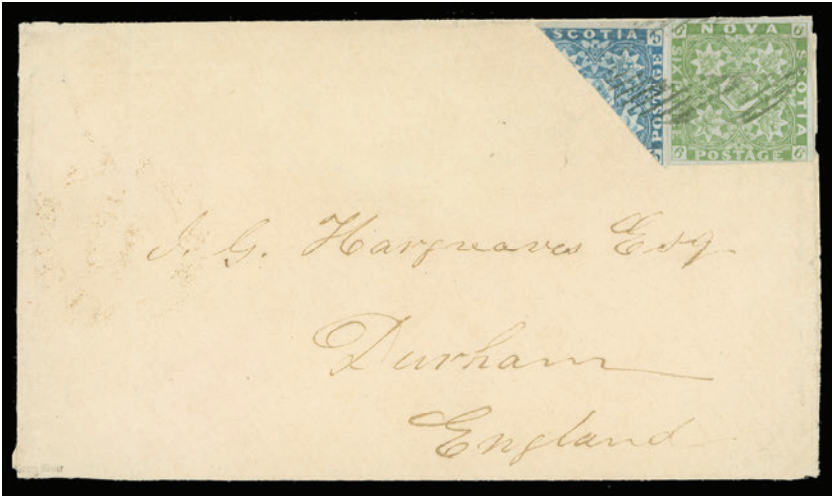 SCOTIA
POSTAGE
NOVA
SCOTIA
POSTAGE
6 6
J. G. Hargreaves Esq
Durham
England